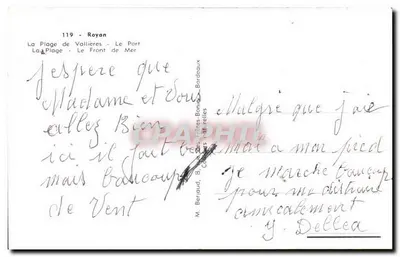 119 - Royan
La Plage de Vallières - Le Port
La Plage - Le Front de Mer
j'espere que
Madame et Vous
allez Bien
ici il fait beau
mais beaucoup
de Vent
Malgré que j'aie
mal a mon pied
je marche beaucoup
pour me distraire
amicalement
Y. Dellea